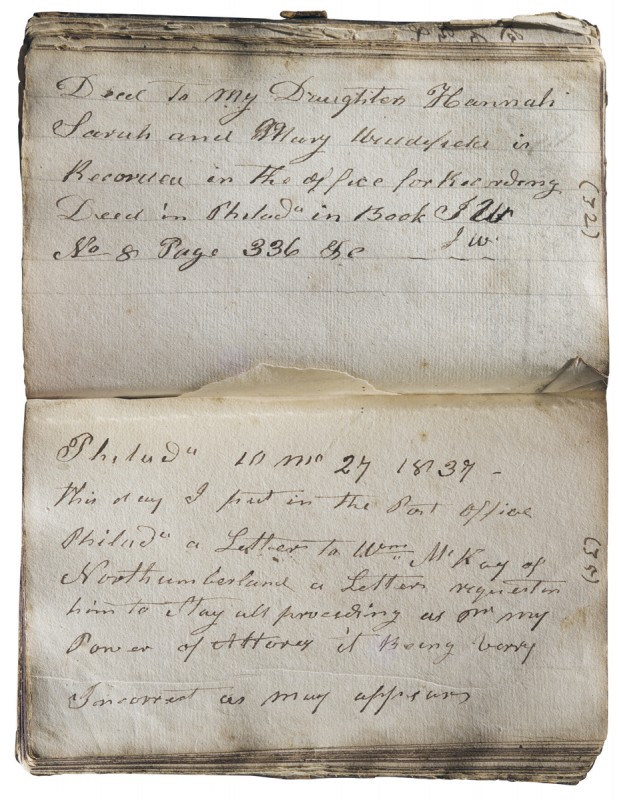 Deed to my Daughters Hannah
Sarah and Mary is
Recorded in the office for Recording
Deed in Philad^a in Book I W
I W
No 8 Page 336 &c
(32)
Philad^a 10 mo 27 1837 -
this day I put in the Post office
Philad^a a Letter to Wm McKay of
Northumberland a Letter requesten
him to Stay all proceding as pr my
Power of Attorney it Being verry
Incorrect as may appear